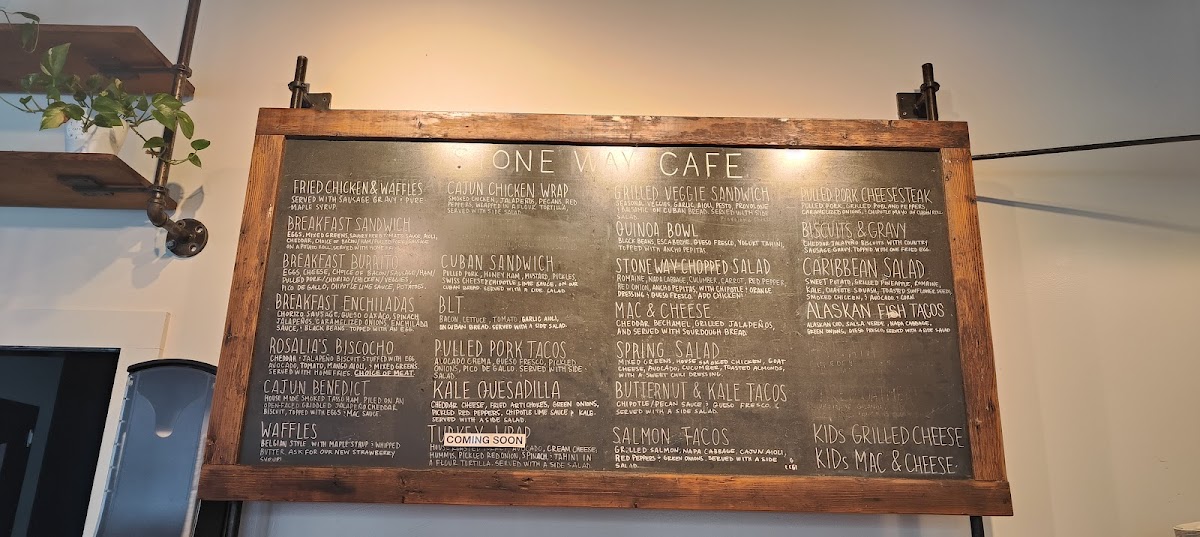 ONE WAY CAFE
FRIED CHICKEN & WAFFLES
SERVED WITH SAUSAGE GRAVY + PURE
MAPLE SYRUP
BREAKFAST SANDWICH
EGGS, MIXED GREENS,
CHEDDAR, CHOICE OF BACON/HAM/
ON A
BREAKFAST BURRITO
EGGS, CHEESE, CHOICE OF BACON/SAUSAGE/HAM/
PULLED PORK/CHORIZO/CHICKEN/VEGGIES,
PICO DE GALLO, CHIPOTLE LIME SAUCE, POTATOES.
BREAKFAST ENCHILADAS
CHORIZO SAUSAGE, QUESO OAXACA, SPINACH,
JALAPEÑOS, CARAMELIZED ONIONS, ENCHILADA
SAUCE, + BLACK BEANS TOPPED W/ AN EGG
ROSALIA'S BISCOCHO
CHEDDAR + JALAPEÑO BISCUIT STUFFED WITH EGG,
AVOCADO, TOMATO, MANGO AIOLI, + MIXED GREENS.
SERVED WITH HOMEFRIES. CHOICE OF MEAT.
CAJUN BENEDICT
HOUSE MADE SMOKED TASSO HAM, PILED ON AN
OPEN-FACED GRIDDLED JALAPEÑO CHEDDAR
BISCUIT, TOPPED WITH EGGS + MAC SAUCE.
WAFFLES
BELGIAN STYLE WITH MAPLE SYRUP + WHIPPED
BUTTER. ASK FOR OUR NEW STRAWBERRY
SYRUP!
CAJUN CHICKEN WRAP
SMOKED CHICKEN, JALAPEÑOS, PECANS, RED
PEPPERS, WRAPPED IN A FLOUR TORTILLA,
SERVED WITH SIDE SALAD.
CUBAN SANDWICH
PULLED PORK, HONEY HAM, MUSTARD, PICKLES,
SWISS CHEESE + CHIPOTLE LIME SAUCE, ON OUR
CUBAN BREAD. SERVED WITH A SIDE SALAD.
BLT
BACON, LETTUCE, TOMATO, GARLIC AIOLI,
ON CUBAN BREAD. SERVED WITH A SIDE SALAD.
PULLED PORK TACOS
AVOCADO CREMA, QUESO FRESCO, PICKLED
ONIONS, PICO DE GALLO. SERVED WITH SIDE
SALAD
KALE QUESADILLA
CHEDDAR CHEESE, FRIED ARTICHOKES, GREEN ONIONS,
PICKLED RED PEPPERS, CHIPOTLE LIME SAUCE + KALE.
SERVED WITH A SIDE SALAD.
TURKEY WRAP
COMING SOON
AVOCADO, CREAM CHEESE,
HUMMUS, PICKLED RED ONION, SPINACH + TAHINI IN
A FLOUR TORTILLA. SERVED WITH A SIDE SALAD
GRILLED VEGGIE SANDWICH
SEASONAL VEGGIES, GARLIC AIOLI, PESTO, PROVOLONE
ON CUBAN BREAD. SERVED WITH SIDE
SALAD
QUINOA BOWL
BLACK BEANS, ESCABECHE, QUESO FRESCO, YOGURT TAHINI,
TOPPED WITH ANCHO PEPITAS
STONEWAY CHOPPED SALAD
ROMAINE, NAPA CABBAGE, CUCUMBER, CARROT, RED PEPPER,
RED ONION, ANCHO PEPITAS, WITH CHIPOTLE + ORANGE
DRESSING + QUESO FRESCO ADD CHICKEN!
MAC & CHEESE
CHEDDAR, BECHAMEL, GRILLED JALAPEÑOS,
AND SERVED WITH SOURDOUGH BREAD
SPRING SALAD
MIXED GREENS, HOUSE SMOKED CHICKEN, GOAT
CHEESE, AVOCADO, CUCUMBER, TOASTED ALMONDS,
WITH A SWEET CHILI DRESSING.
BUTTERNUT & KALE TACOS
CHIPOTLE/PECAN SAUCE + QUESO FRESCO,
SERVED WITH A SIDE SALAD.
SALMON TACOS
GRILLED SALMON, NAPA CABBAGE, CAJUN AIOLI,
RED PEPPERS + GREEN ONIONS. SERVED WITH A SIDE
SALAD
PULLED PORK CHEESESTEAK
PULLED PORK, GRILLED POBLANO PEPPERS,
CARAMELIZED ONIONS, + CHIPOTLE MAYO ON CUBAN ROLL
BISCUITS & GRAVY
CHEDDAR JALAPEÑO BISCUITS WITH COUNTRY
SAUSAGE GRAVY. TOPPED WITH ONE FRIED EGG.
CARIBBEAN SALAD
SWEET POTATO, GRILLED PINEAPPLE, ROMAINE,
KALE, CHIPOTLE SQUASH, TOASTED SUNFLOWER SEEDS,
SMOKED CHICKEN, + AVOCADO + CORN
ALASKAN FISH TACOS
ALASKAN COD, SALSA VERDE, NAPA CABBAGE,
GREEN ONIONS, QUESO FRESCO. SERVED WITH A SIDE SALAD
KIDS GRILLED CHEESE
KIDS MAC & CHEESE